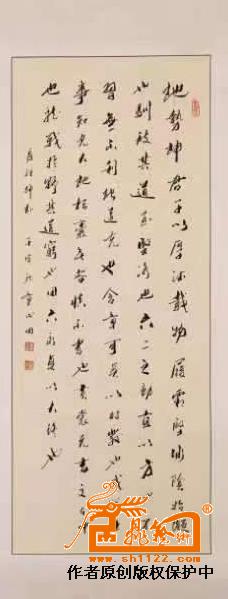 地勢坤君子以厚德載物履霜堅冰陰始凝
也馴致其道至堅冰也六二之動直以方也不
習無不利地道光也含章可貞以時發也或
事知光大也括囊无咎慎不害也黃裳元吉文在中
也龍戰於野其道窮也用六永貞以大終也
易經坤卦
www.sh1122.com
作者原创版权保护中